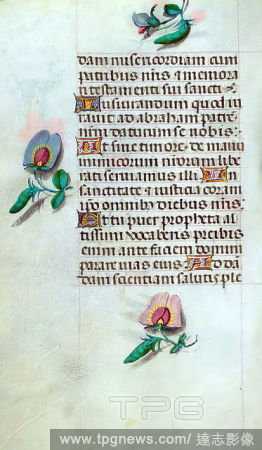 dam misericordiam cum
patribus nris: et memora
ri testamenti sui sancti
Iusiurandum quod iu
rauit ad abraham patrē
nrm daturum se nobis:
Ut sine timore: de manu
inimicorum nrorum libe
rati seruiamus illi
In sanctitate et iusticia coram
ipo omnibꝯ diebus nris:
Et tu puer propheta al
tissimi vocaberis: preibis
enim ante faciem domini
parare vias eius: Ad dā
dam scientiam salutis ple
TPG
www.tpgnews.com/ 達志影像